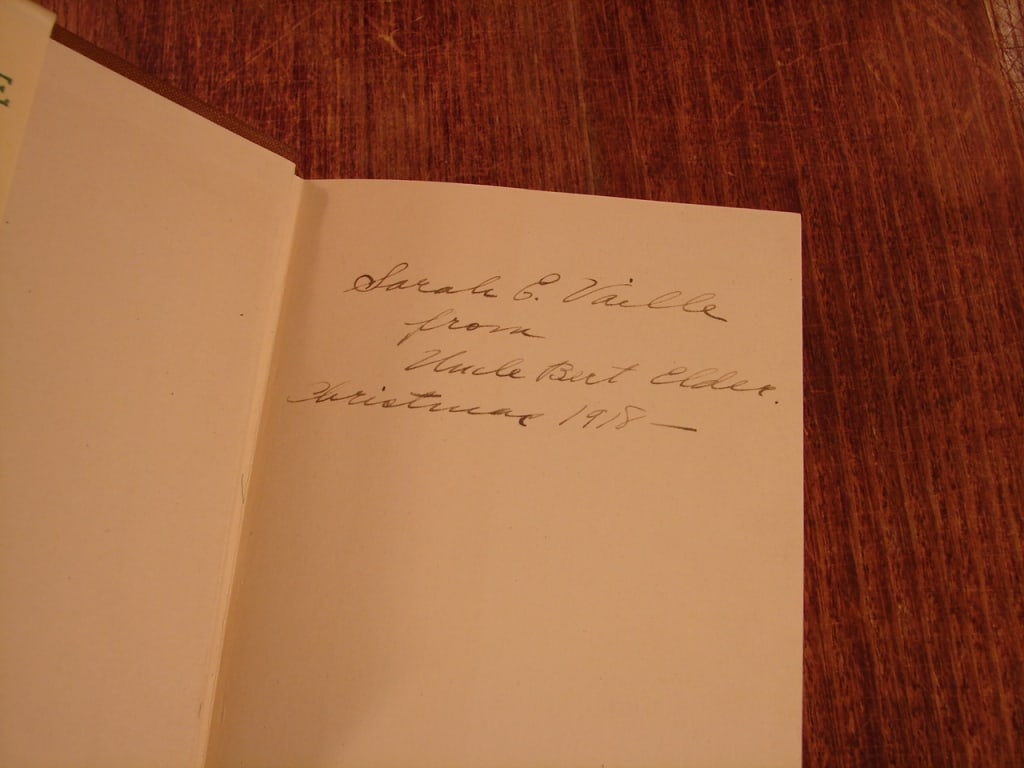 Sarah E. Vaille
from
Uncle Bert Elder.
Christmas 1918—